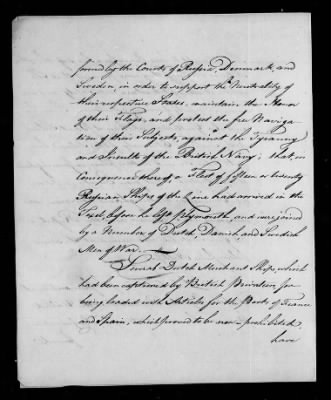 formed by the Courts of Russia, Denmark, and
Sweden, in order to support the Neutrality of
their respective States, maintain the Honor
of their Flags, and protect the free Naviga-
tion of their Subjects, against the Tyranny
and Insults of the British Navy; that, in
consequence thereof a Fleet of fifteen or twenty
Russian Ships of the Line had arrived in the
Texel, before he left Plymouth, and were joined
by a Number of Dutch, Danish and Swedish
Men of War.
Several Dutch Merchant Ships, which
had been captured by British Privateers for
being loaded with Articles for the Ports of France
and Spain, which proved to be non prohibited,
have